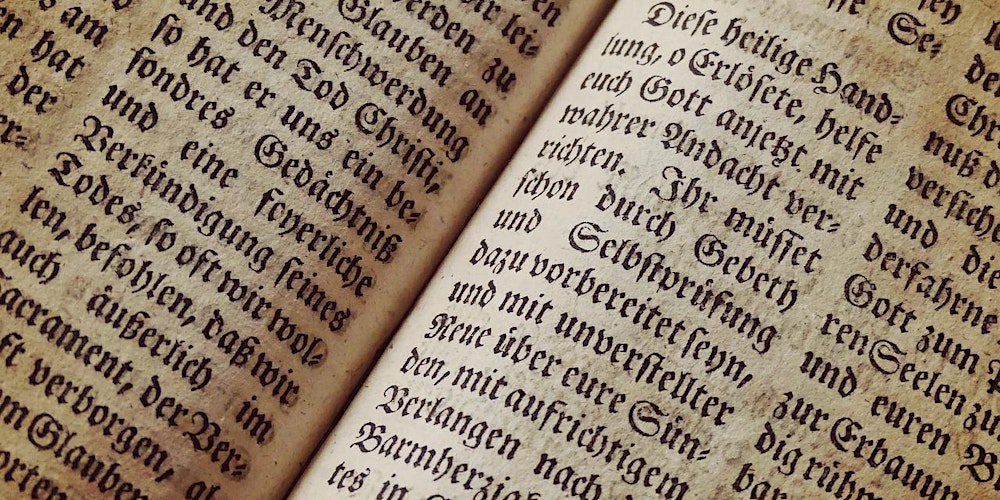 am
hat
der
lei=
zu
Glauben an
Menschwerdung
und den Tod Christi,
so hat er uns ein be=
sondres Gedächtniß
und eine feyerliche
Verkündigung seines
Todes, so oft wir wol=
len, befohlen, daß wir
auch äußerlich im
Sacrament, der Ver=
verborgen,
Glauben
Diese heilige Hand=
lung, o Erlösete, helfe
euch Gott anjetzt mit
wahrer Andacht ver=
richten. Ihr müsset
schon durch Gebeth
und Selbstprüfung
dazu vorbereitet seyn,
und mit unverstellter
Reue über eure Sün=
den, mit aufrichtigem
Verlangen nach
Barmherzig
tes in
Se=
nuß
versiche
und die
derfahrne
Gott zum
ren Seelen zu
und euren
zur Erbauu
dig rühm